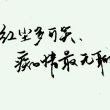 红尘多可笑、
痴情最无聊